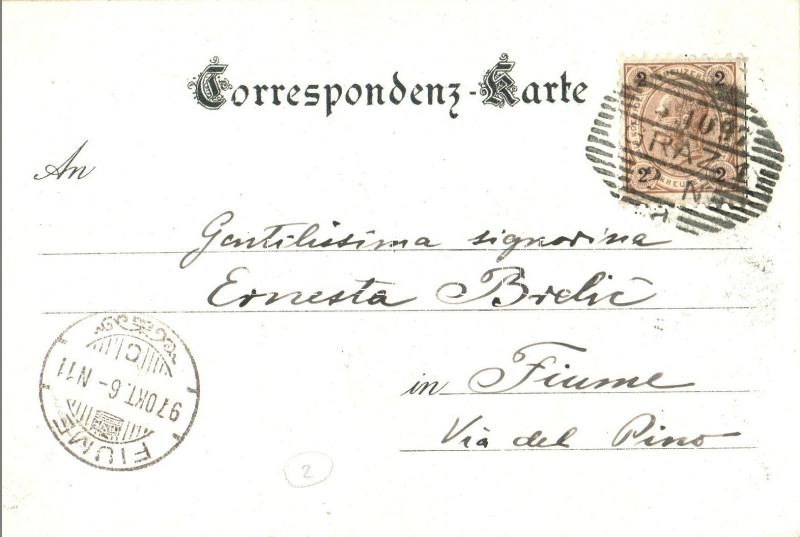 Correspondenz-Karte
2 2
GRAZ
2 2
An
Gentilissima signorina
Ernesta Brelić
in Fiume
Via del Pino
97 OKT. 6-N11
FIUME
2